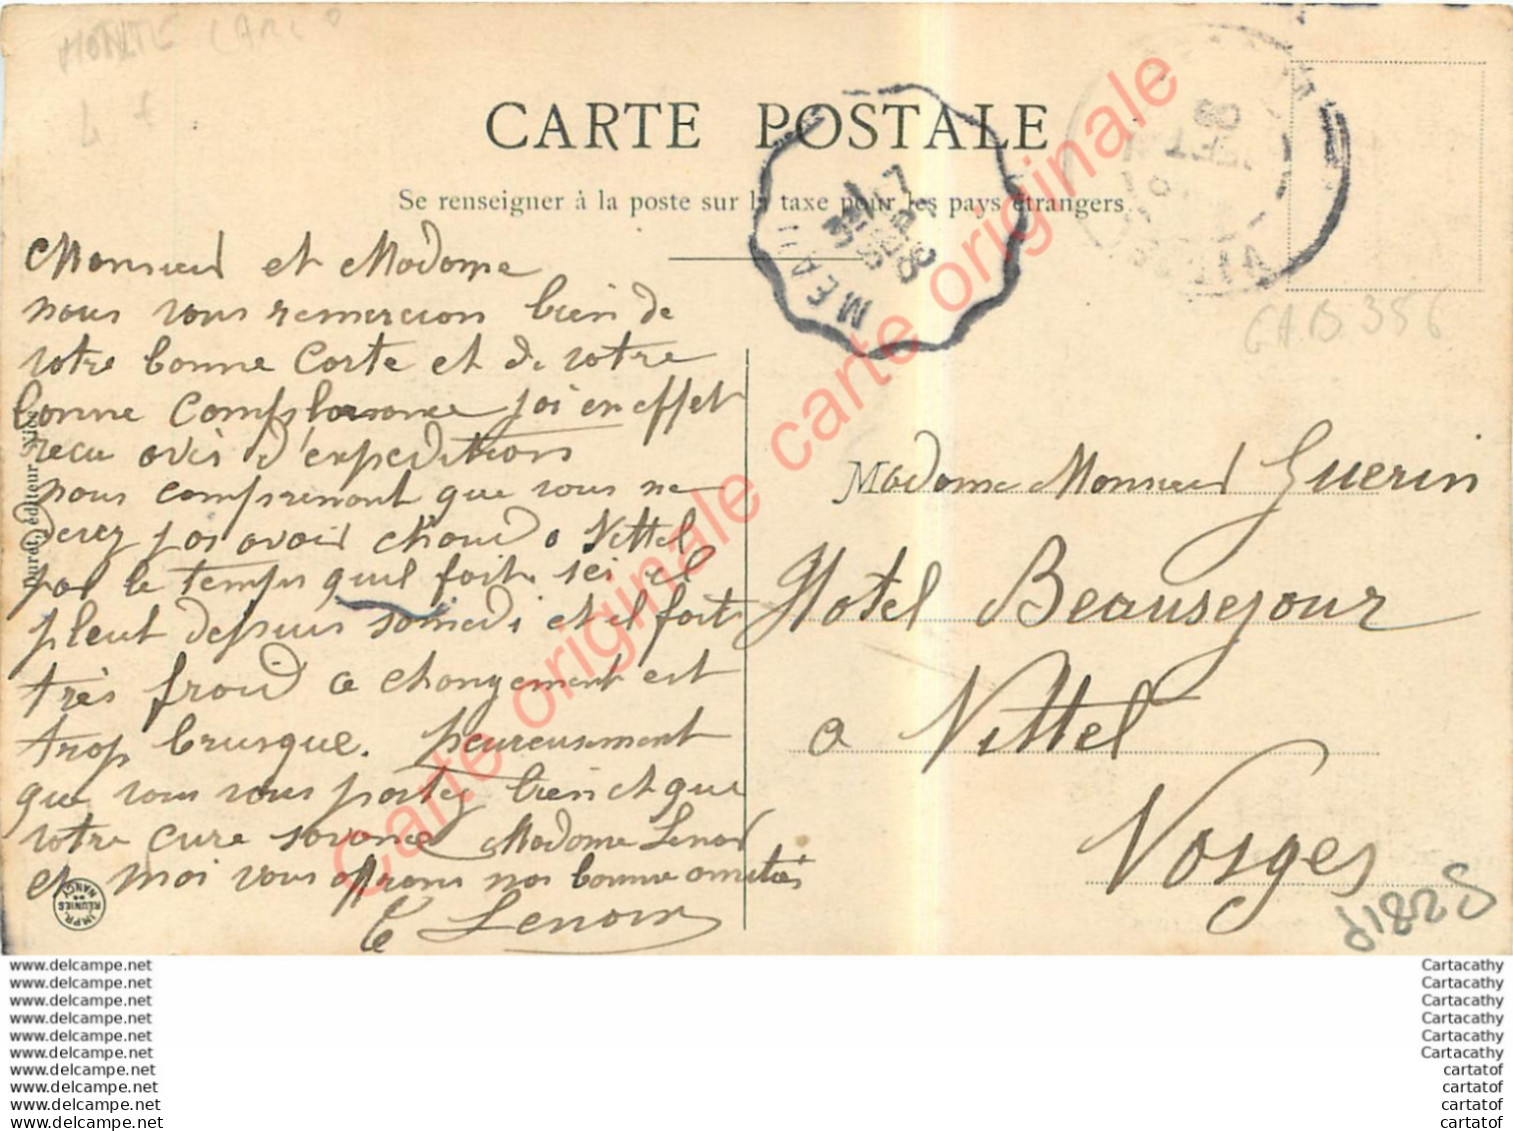 MONTE CARLO
CARTE POSTALE
Se renseigner à la poste sur la taxe pour les pays étrangers
Monsieur et Madame
nous vous remercion bien de
votre bonne Carte et de votre
bonne Complaisance jai en effet
recu avis d'expeditions
nous comprenont que vous ne
devez pas avoir chaud a Vittel
par le temps quil fait ici il
pleut depuis samedi et il fait
très froid ce changement est
trop brusque. heureusement
que vous vous portez bien et que
votre cure savance Madame Lenoir
et moi vous offrons nos bonne amitiés
Lenoir
Madame Monsieur Guerin
Hotel Beausejour
a Vittel
Vosges
GAB 356
P182S
MEAU
éditeur
IMPR. REUNIES DE NANCY
Carte originale carte originale
Carte originale carte originale
www.delcampe.net
www.delcampe.net
www.delcampe.net
www.delcampe.net
www.delcampe.net
www.delcampe.net
www.delcampe.net
www.delcampe.net
www.delcampe.net
www.delcampe.net
Cartacathy
Cartacathy
Cartacathy
Cartacathy
Cartacathy
Cartacathy
cartatof
cartatof
cartatof
cartatof